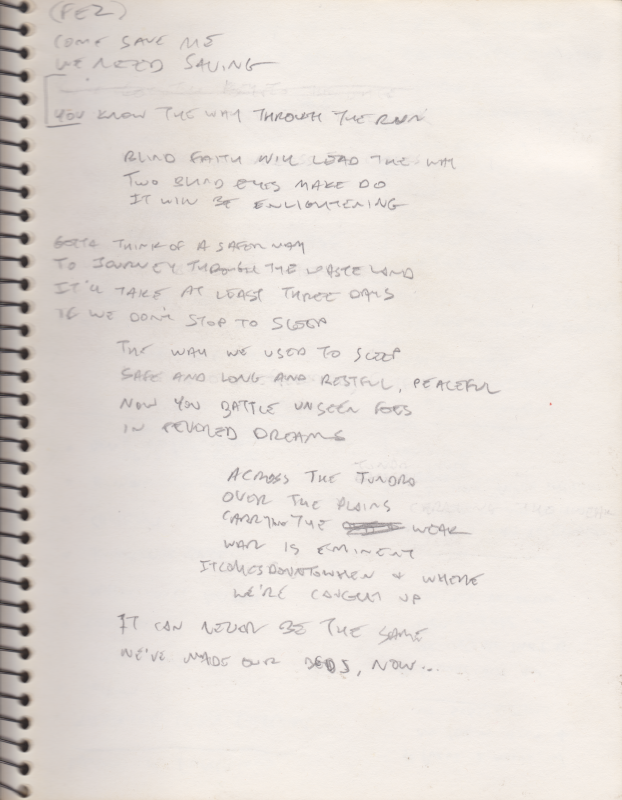 (FEZ)
COME SAVE ME
WE NEED SAVING
YOU KNOW THE WAY THROUGH THE RAIN
BLIND FAITH WILL LEAD THE WAY
TWO BLIND EYES MAKE DO
IT WILL BE ENLIGHTENING
GOTTA THINK OF A SAFER WAY
TO JOURNEY THROUGH THE WASTE LAND
IT'LL TAKE AT LEAST THREE DAYS
IF WE DON'T STOP TO SLEEP
THE WAY WE USED TO SLEEP
SAFE AND LONG AND RESTFUL, PEACEFUL
NOW YOU BATTLE UNSEEN FOES
IN FEVERED DREAMS
ACROSS THE TUNDRA
OVER THE PLAINS
CARRYING THE WEAK
WAR IS EMINENT
IT COMES DOWN TO WHEN + WHERE
WE'RE CAUGHT UP
IT CAN NEVER BE THE SAME
WE'VE MADE OUR BEDS, NOW...